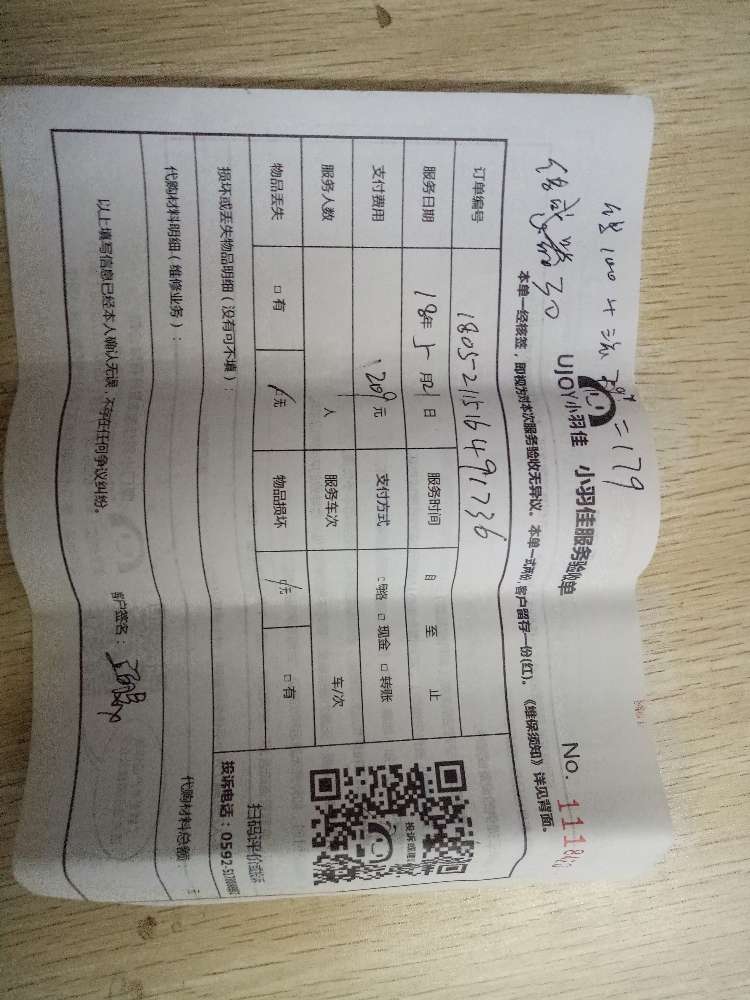 UJOY小羽佳 小羽佳服务验收单 No. 111
=179
30
本单一经核签，即视为对本次服务验收无异议。本单一式两份，客户留存一份(红)。《维保须知》详见背面。
订单编号 1805-211516491736
服务日期 18年5月21日 服务时间 自 至 止
支付费用 209元 支付方式 □网络 □现金 □转账
服务人数 人 服务车次 车/次
物品丢失 □有 □无 物品损坏 □无 □有
损坏或丢失物品明细（没有可不填）：
代购材料明细（维修业务）： 代购材料总额：
以上填写信息已经本人确认无误，不存在任何争议纠纷。 客户签名：
扫码评价或投诉
投诉电话：0592-